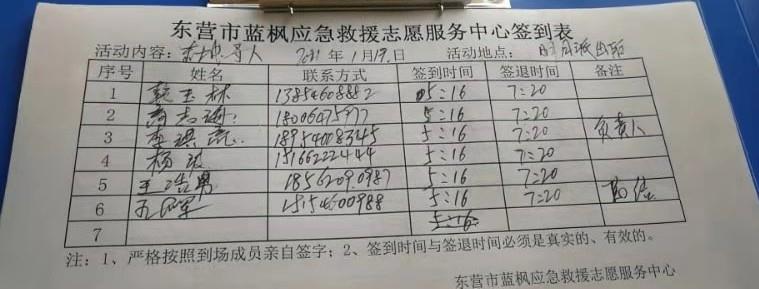 东营市蓝枫应急救援志愿服务中心签到表
活动内容: 寻人 2021年1月19日 活动地点: 派出所
序号 姓名 联系方式 签到时间 签退时间 备注
1 玉林 13854608882 05:16 7:20
2 5:16 7:20
3 李 18754008345 5:16 7:20 负责人
4 杨 15166222444 5:16 7:20
5 王浩男 18562090987 5:16 7:20
6 5:16 7:20
7 5:16
注: 1、严格按照到场成员亲自签字; 2、签到时间与签退时间必须是真实的、有效的。
东营市蓝枫应急救援志愿服务中心